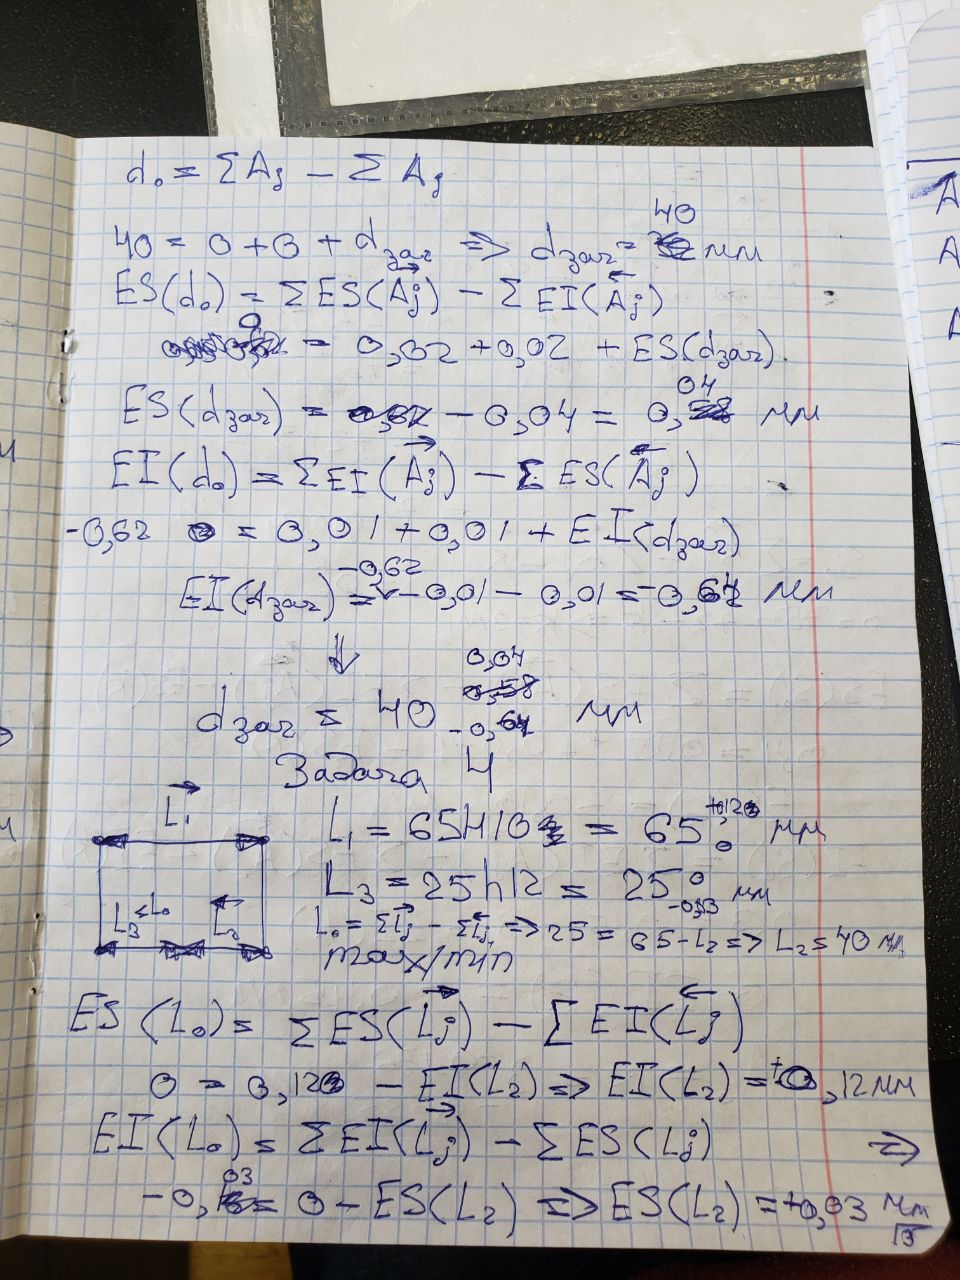 d₀ = ΣAj − ΣAj
40 = 0 + 0 + dзаг => dзаг = 40 мм
ES(d₀) = ΣES(Aj) − ΣEI(Aj)
0 = 0,02 + 0,02 + ES(dзаг)
ES(dзаг) = − 0,04 = 0,04 мм
EI(d₀) = ΣEI(Aj) − ΣES(Aj)
-0,62 = 0,01 + 0,01 + EI(dзаг)
EI(dзаг) = -0,62 − 0,01 − 0,01 = -0,64 мм
dзаг = 40 0,04 -0,64 мм
Задача 4
L₁
L₁ = 65H10 = 65 +0,12 0 мм
L₃ = 25h12 = 25 0 мм
L₃ = L₀ L₂
L₀ = ΣLj − ΣLj => 25 = 65 - L₂ => L₂ = 40 мм
max/min
ES(L₀) = ΣES(Lj) − ΣEI(Lj)
0 = 0,12 − EI(L₂) => EI(L₂) = +0,12 мм
EI(L₀) = ΣEI(Lj) − ΣES(Lj) =>
-0,03 = 0 − ES(L₂) => ES(L₂) = +0,03 мм
13